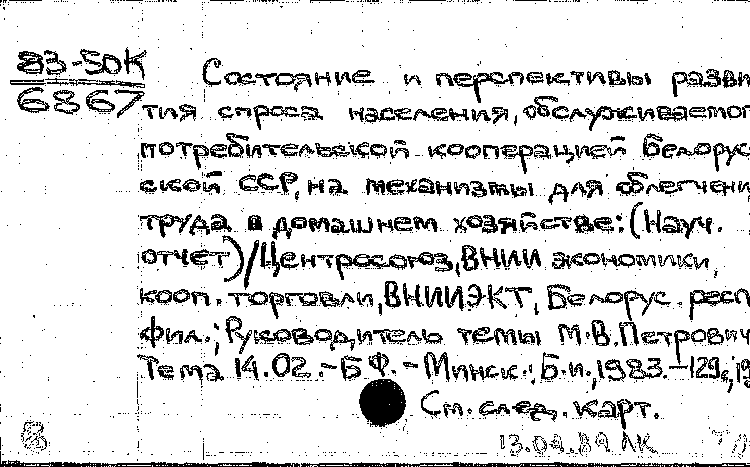 83-50К
6867
Состояние и перспективы разви
тия спроса населения, обслуживаемог
потребительской кооперацией Белорус
ской ССР, на механизмы для облегчени
труда в домашнем хозяйстве: (Науч.
отчет)/Центросоюз, ВНИИ экономики,
кооп. торговли, ВНИИЭКТ, Белорус. респ
фил.; Руководитель темы М.В. Петрович
Тема 14.02.-БФ.-Минск.: Б.и., 1983.-129с,
См. след. карт.
8
13.04.89 ЛК